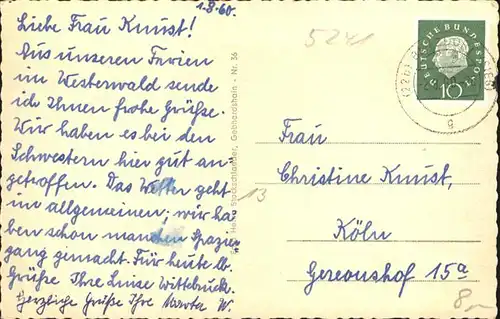 1.8.60.
Liebe Frau Knust!
Aus unseren Ferien
im Westerwald sende
ich Ihnen frohe Grüße.
Wir haben es bei den
Schwestern hier gut an-
getroffen. Das Wetter geht
im allgemeinen; wir ha
ben schon manchen Spazier
gang gemacht. Für heute lb.
Grüße Ihre Luise Wittebruck.
Herzliche Grüße Ihre W
Gebhardshain - Nr. 36
13
5241
DEUTSCHE BUNDESPOST
10
(22b)
g
Frau
Christine Knust,
Köln
Gereonshof 15a